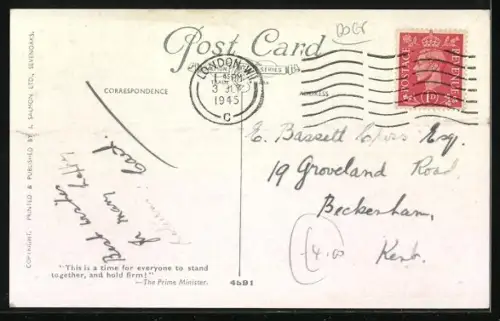 DOGS
Post Card
LONDON. W.1.
1 45 PM
3 JLY
1945
C
POSTAGE
REVENUE
1D
CORRESPONDENCE
ADDRESS
COPYRIGHT. PRINTED & PUBLISHED BY J. SALMON LTD., SEVENOAKS.
SERIES
E. Bassett Esq.
19 Groveland Road
Beckenham,
Kent.
4.00
Best wishes
for many happy
Card.
"This is a time for everyone to stand
together, and hold firm!"
—The Prime Minister.
4591